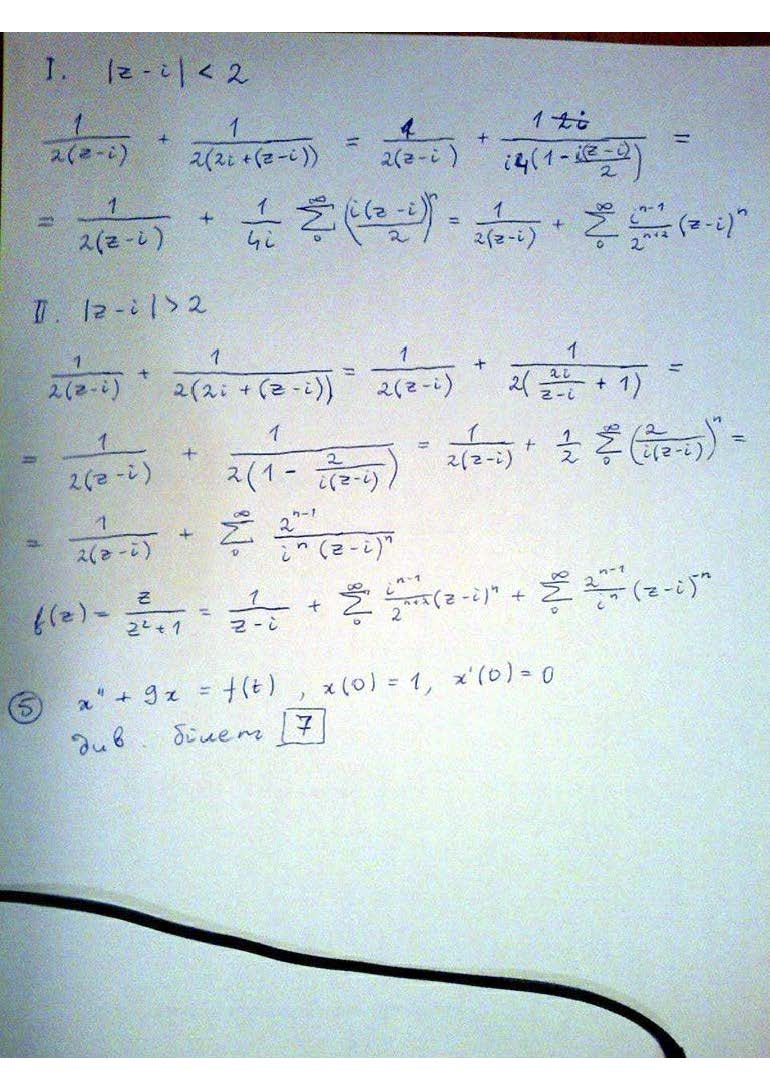 I. |z-i| < 2
1/(2(z-i)) + 1/(2(2i+(z-i))) = 1/(2(z-i)) + 1/(i4(1 - i(z-i)/2)) =
= 1/(2(z-i)) + 1/(4i) ∑_0^∞ (i(z-i)/2)^n = 1/(2(z-i)) + ∑_0^∞ i^(n-1)/2^(n+2) (z-i)^n
II. |z-i| > 2
1/(2(z-i)) + 1/(2(2i+(z-i))) = 1/(2(z-i)) + 1/(2(2i/(z-i) + 1)) =
= 1/(2(z-i)) + 1/(2(1 - 2/(i(z-i)))) = 1/(2(z-i)) + 1/2 ∑_0^∞ (2/(i(z-i)))^n =
= 1/(2(z-i)) + ∑_0^∞ 2^(n-1)/(i^n (z-i)^n)
f(z) = z/(z²+1) = 1/(z-i) + ∑_0^∞ i^(n-1)/2^(n+2) (z-i)^n + ∑_0^∞ 2^(n-1)/i^n (z-i)^(-n)
5 x'' + 9x = f(t), x(0) = 1, x'(0) = 0
див. білет 7